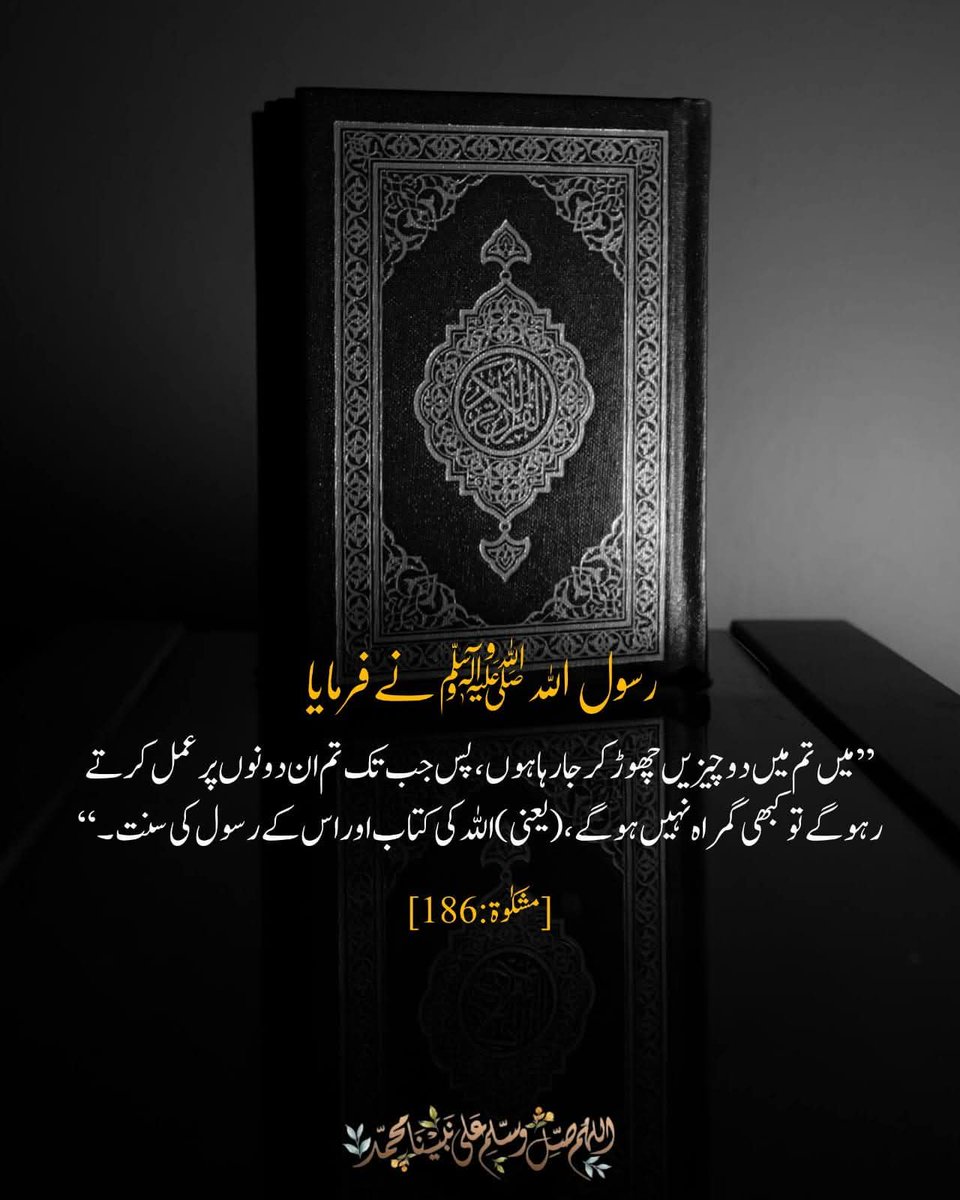 القرآن الكريم
رسول اللہ ﷺ نے فرمایا
”میں تم میں دو چیزیں چھوڑ کر جا رہا ہوں، پس جب تک تم ان دونوں پر عمل کرتے
رہو گے تو کبھی گمراہ نہیں ہو گے، (یعنی) اللہ کی کتاب اور اس کے رسول کی سنت۔“
[مشکوٰۃ:186]
اللهم صل وسلم على نبينا محمد